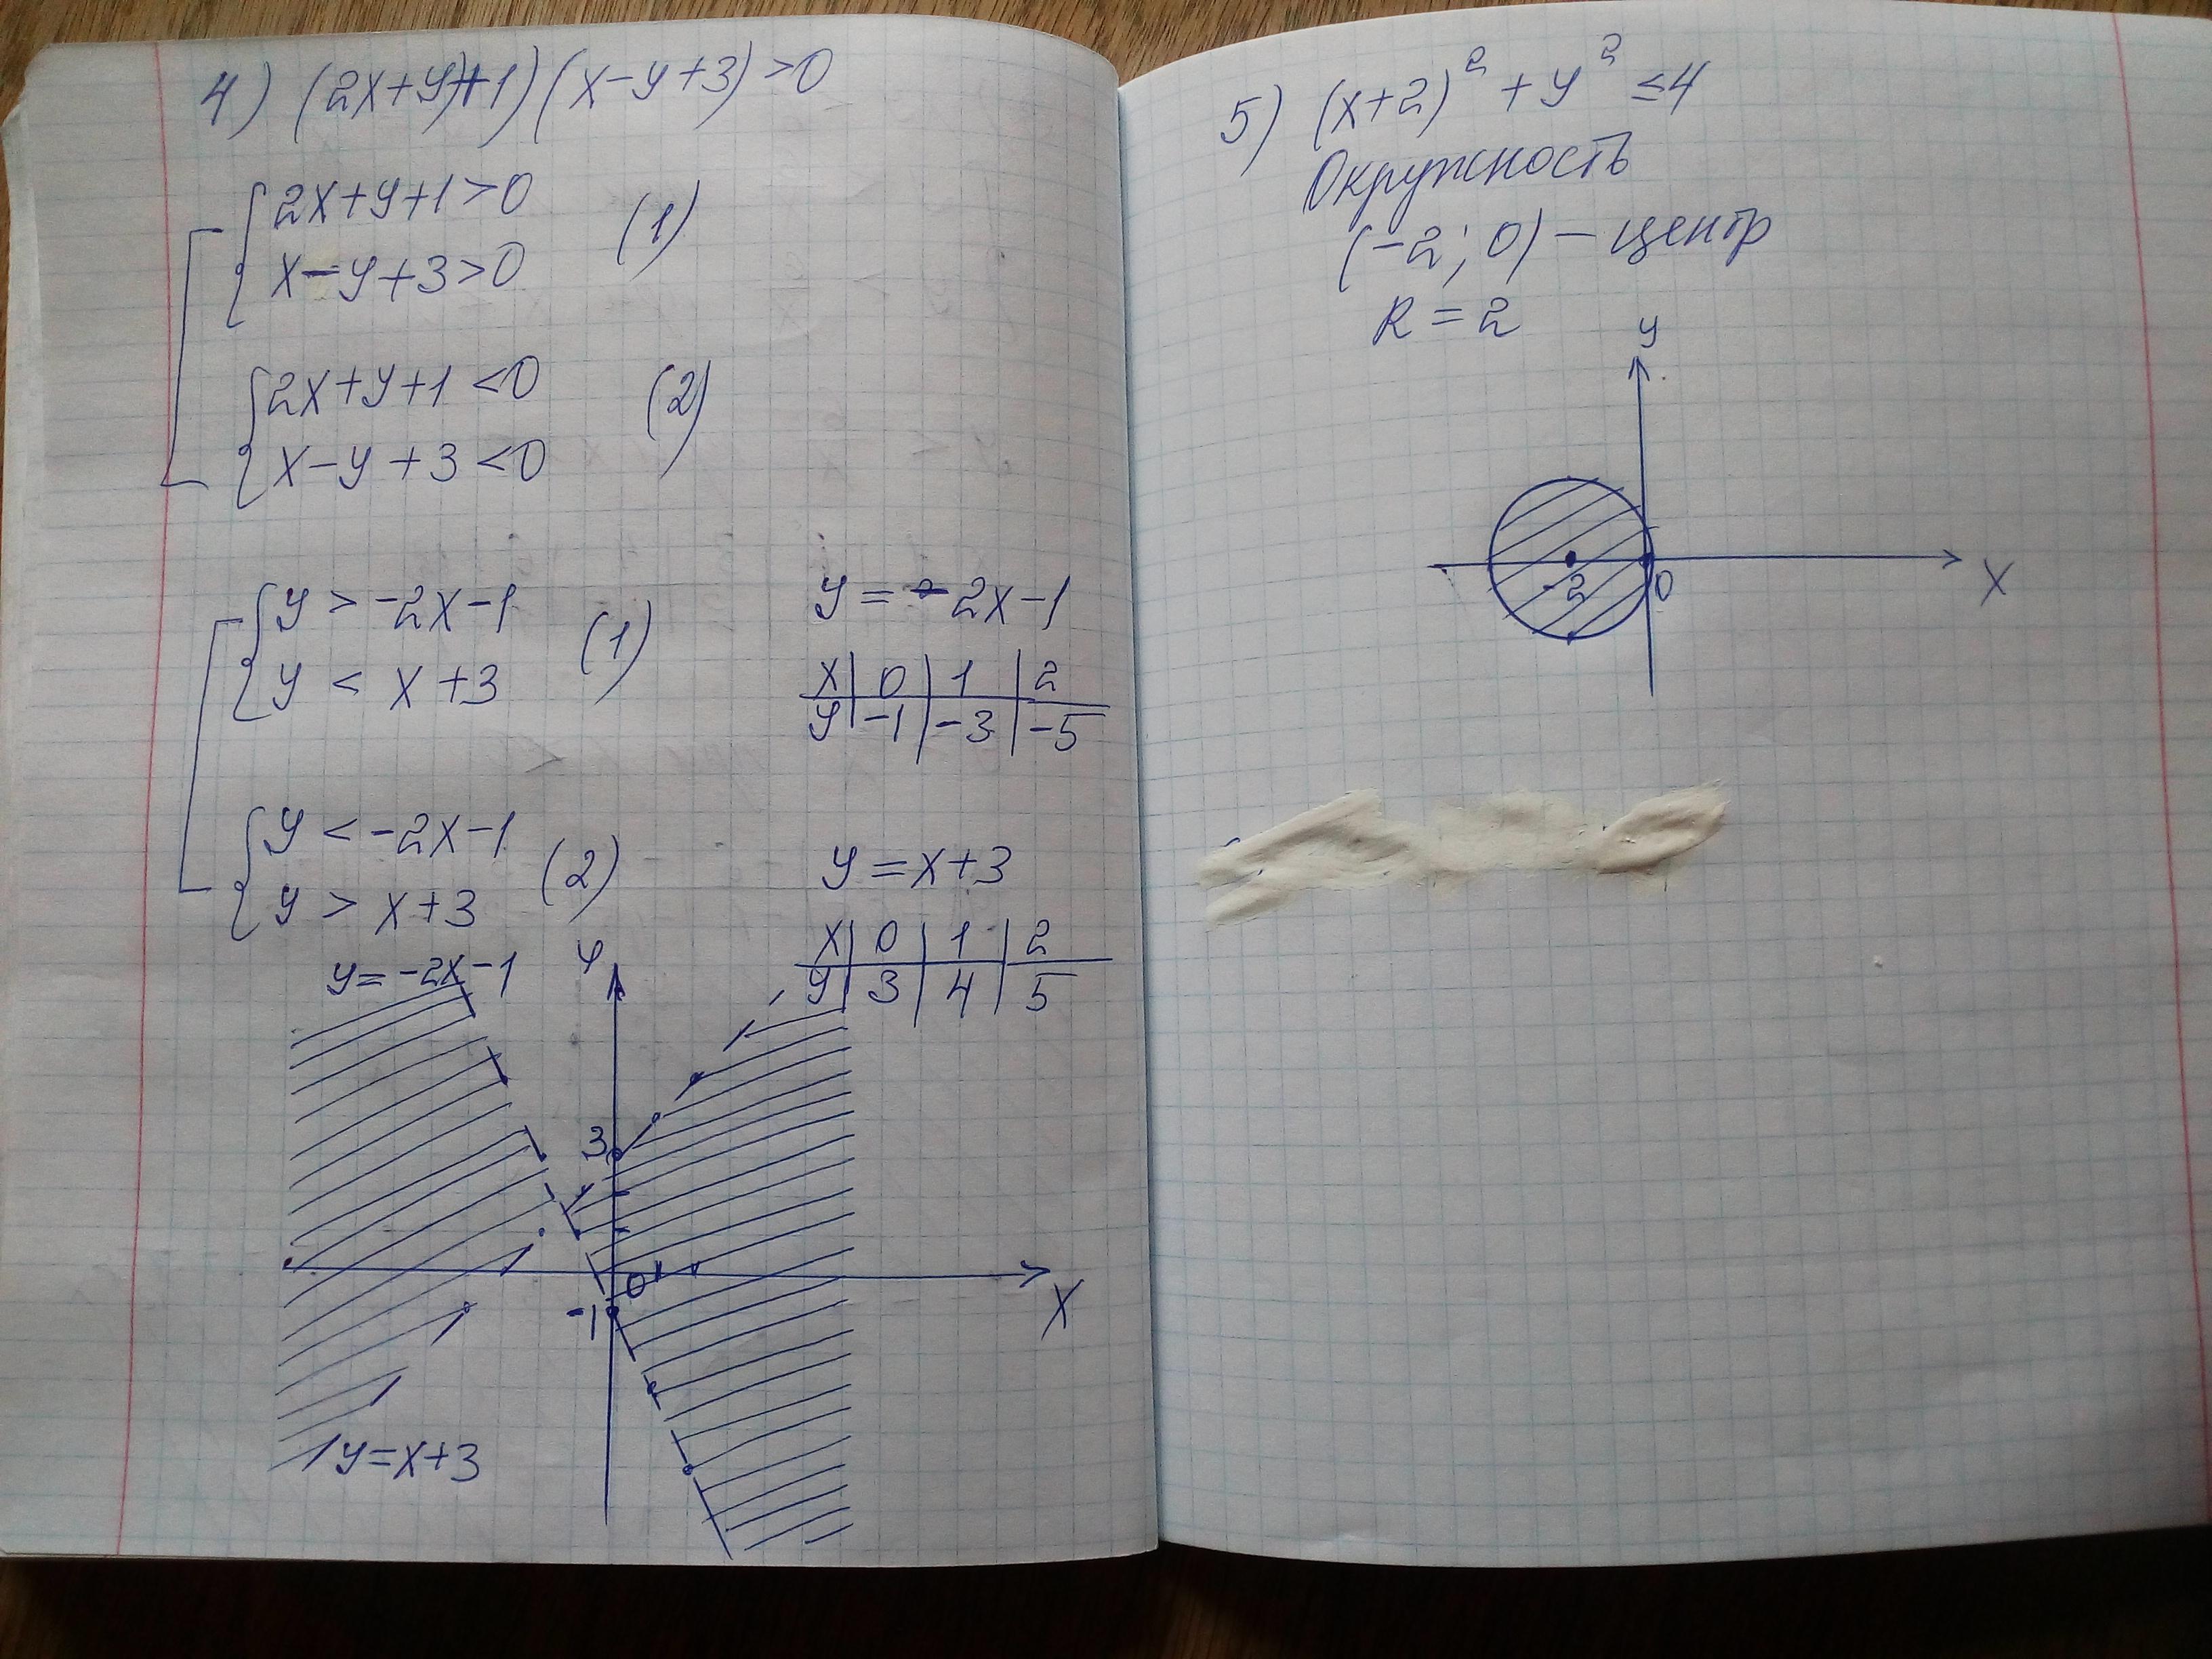 4) (2x+y+1)(x-y+3)>0
{2x+y+1>0
x-y+3>0 (1)
{2x+y+1<0 (2)
x-y+3<0
{y>-2x-1 (1)
y<x+3
{y<-2x-1 (2)
y>x+3
y=-2x-1
x 0 1 2
y -1 -3 -5
y=x+3
x 0 1 2
y 3 4 5
y=-2x-1
y
3
0
-1
x
y=x+3
5) (x+2)² + y² ≤4
Окружность
(-2; 0) – центр
R=2
y
-2
0
x